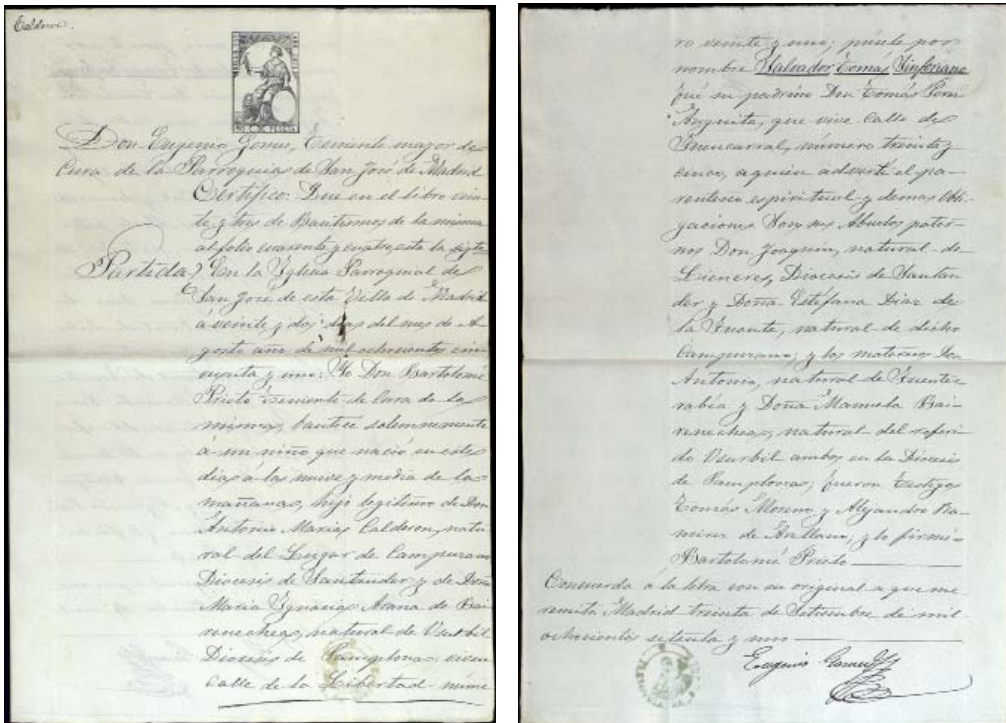 Calderon.
50 C. DE PESETA
Don Eugenio Gomez, Teniente mayor de
Cura de la Parroquia de San José de Madrid
Certifico: Que en el libro vein
te y tres de Bautismos de la misma
al folio cuarenta y cuatro, esta la sigte
Partida) En la Yglesia Parroquial de
San José de esta Villa de Madrid
á veinte y dos dias del mes de A
gosto año de mil ochocientos cin
cuenta y uno: Yo Don Bartolomé
Prieto Teniente de Cura de la
misma, bauticé solemnemente
á un niño que nació en este
dia á las nueve y media de la
mañana, hijo legitimo de Don
Antonio Maria Calderon, natu
ral del Lugar de Campuzano
Diocesis de Santander y de Doña
Maria Ygnacia Arana de Bai
renechea, natural de Usurbil
Diocesis de Pamplona: viven
calle de la Libertad núme
ro veinte y uno; púsele por
nombre Salvador Tomás Sinforiano
fué su padrino Don Tomás Pera
Anguita, que vive Calle de
Fuencarral, número treinta y
cinco, a quien advertí el pa-
rentesco espiritual y demas obli
gaciones Son sus Abuelos pater-
nos Don Joaquin, natural de
Lieneres, Diocesis de Santan
der y Doña Estéfana Diaz de
la Fuente, natural de dicho
Campuzano; y los maternos Don
Antonio, natural de Fuenter
rabia y Doña Manuela Bai-
renechea, natural del referi
do Usurbil ambos en la Diocesis
de Pamplona; fueron testigos
Tomás Moreno y Alejandro Ra-
mirez de Arellano, y lo firmé =
Bartolomé Prieto
Concuerda á la letra con su original a que me
remito. Madrid treinta de Setiembre de mil
ochocientos setenta y uno
Eugenio Gomez